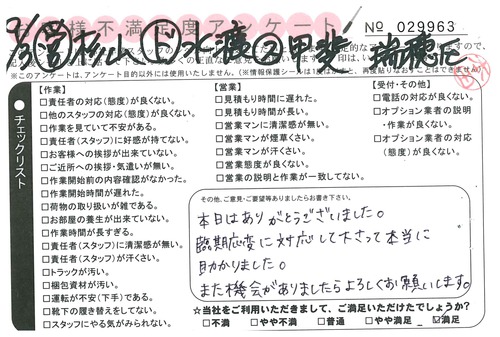 お客様不満足度アンケート
No 029963
9/3 営 杉山 ド 水渡 ② 甲斐 瑞穂区
(※このアンケートは、アンケート目的以外には使用いたしません。)(※情報保護シールは1度はがすと、再度貼りなおすことはできません)
チェックリスト
【作業】
□責任者の対応(態度)が良くない。
□他のスタッフの対応(態度)が良くない。
□作業を見ていて不安がある。
□責任者(スタッフ)に好感が持てない。
□お客様への挨拶が出来ていない。
□ご近所への挨拶・気遣いが無い。
□作業開始前の内容確認がなかった。
□作業開始時間が遅れた。
□荷物の取り扱いが雑である。
□お部屋の養生が出来ていない。
□作業時間が長すぎる。
□責任者(スタッフ)に清潔感が無い。
□責任者(スタッフ)が汗くさい。
□トラックが汚い。
□梱包資材が汚い。
□運転が不安(下手)である。
□靴下の履き替えをしてない。
□スタッフにやる気がみられない。
【営業】
□見積もり時間に遅れた。
□見積もり時間が長い。
□営業マンに清潔感が無い。
□営業マンが煙草くさい。
□営業マンが汗くさい。
□営業態度が良くない。
□営業の説明と作業が一致してない。
【受付・その他】
□電話の対応が良くない。
□オプション業者の説明
・作業が良くない。
□オプション業者の対応
(態度)が良くない。
その他、ご意見・ご要望等ありましたらお書き下さい。
本日はありがとうございました。
臨期応変に対応して下さって本当に
助かりました。
また機会がありましたらよろしくお願いします。
☆当社をご利用いただきまして、ご満足いただけたでしょうか?
□不満 □やや不満 □普通 □やや満足 ☑満足